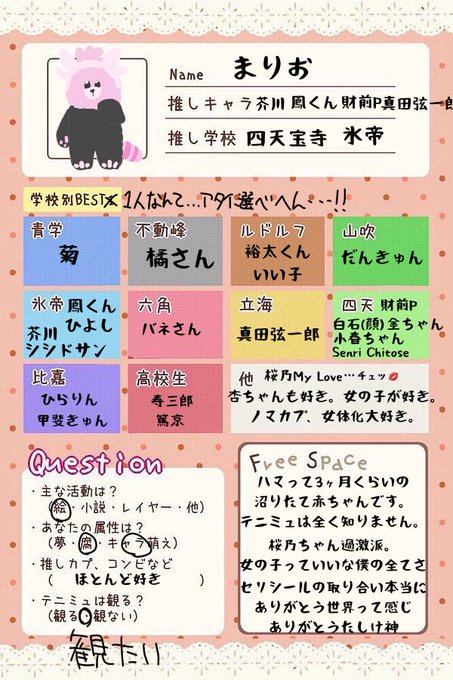 Name まりお
推しキャラ 芥川 鳳くん 財前P真田弦一郎
推し学校 四天宝寺 氷帝
学校別BEST 1人なんて…アタイ選べへん…!!
青学
菊
不動峰
橘さん
ルドルフ
裕太くん
いい子
山吹
だんきゅん
氷帝 鳳くん
芥川 ひよし
シシドサン
六角
バネさん
立海
真田弦一郎
四天 財前P
白石(顔)金ちゃん
小春ちゃん
Senri Chitose
比嘉
ひらりん
甲斐きゅん
高校生
寿三郎
篤京
他 桜乃My Love…チュッ💋
杏ちゃんも好き。女の子が好き。
ノマカプ、女体化大好き。
Question
・主な活動は?
(絵・小説・レイヤー・他)
・あなたの属性は?
(夢・腐・キャラ萌え)
・推しカプ、コンビなど
( ほとんど好き )
・テニミュは観る?
(観る・観ない)
観たい
Free Space
ハマって3ヶ月くらいの
沼りたて赤ちゃんです。
テニミュは全く知りません。
桜乃ちゃん過激派。
女の子っていいな僕の全てさ
セリシールの取り合い本当に
ありがとう世界って感じ
ありがとうたしけ神